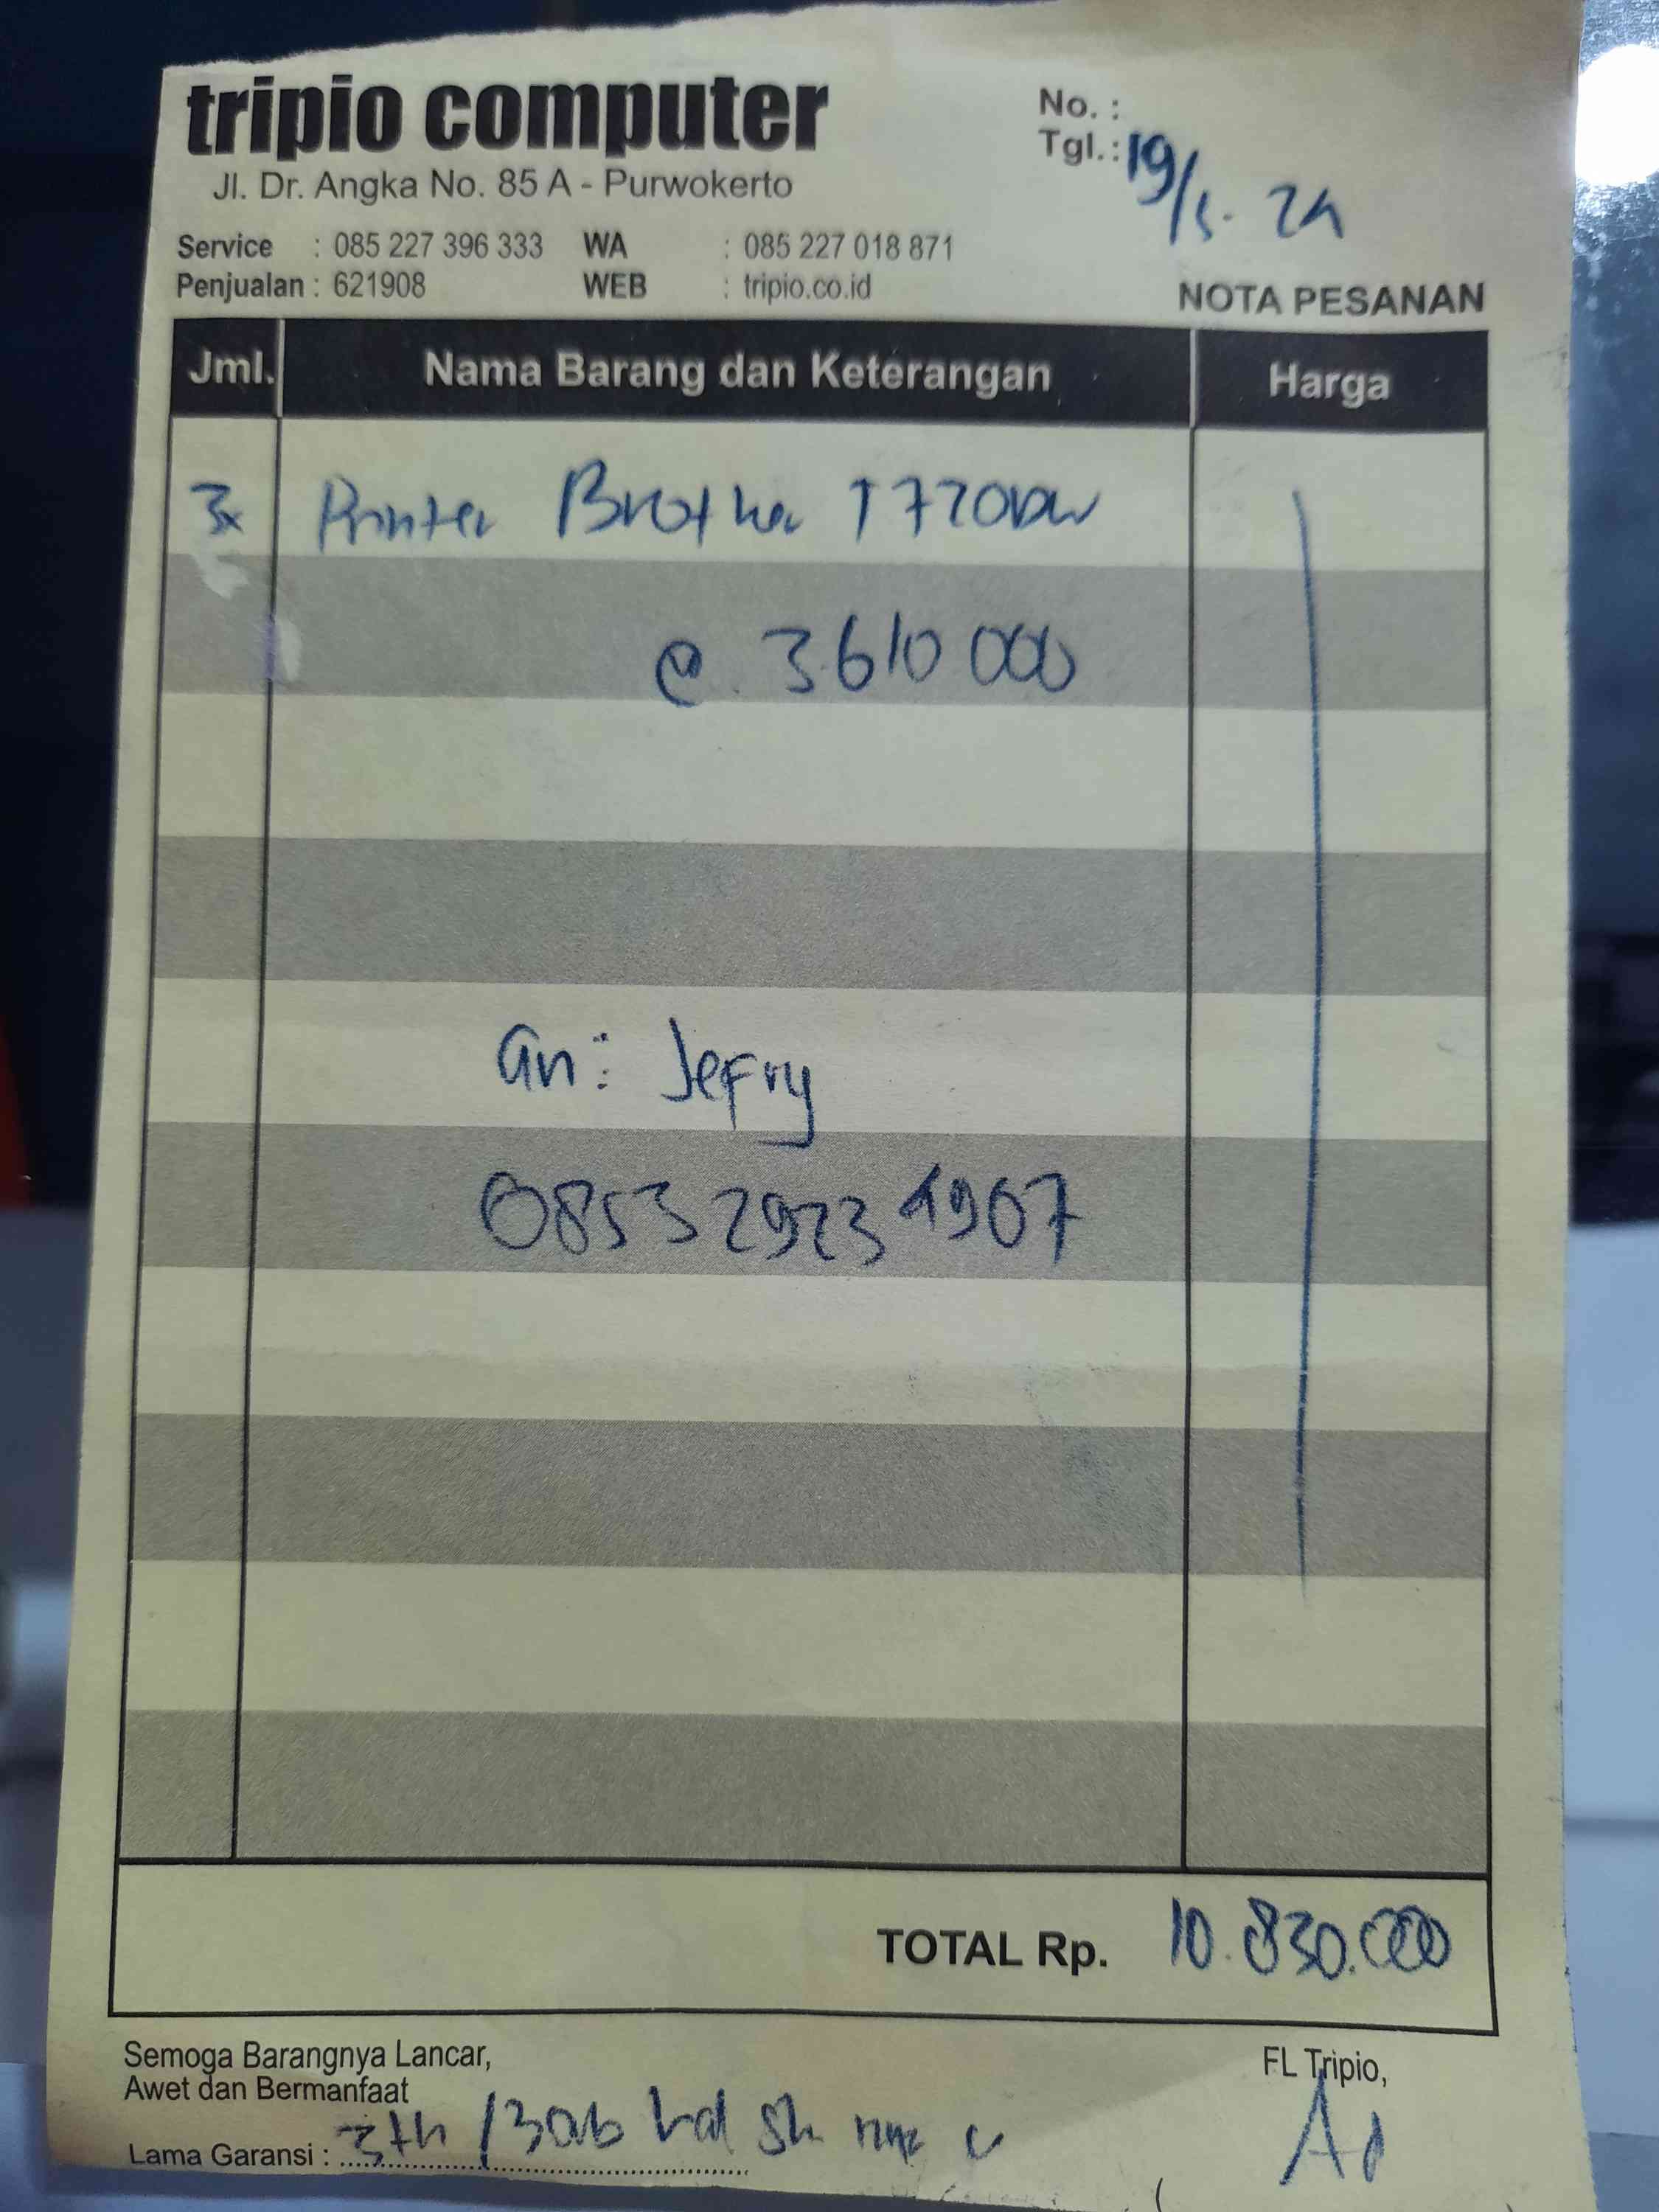 tripio computer
Jl. Dr. Angka No. 85 A - Purwokerto
No. :
Tgl.: 19/5. 24
Service : 085 227 396 333 WA : 085 227 018 871
Penjualan : 621908 WEB : tripio.co.id
NOTA PESANAN
Jml. Nama Barang dan Keterangan Harga
3x Printer Brother T720DW
@ 3.610 000
an: Jefry
0853 2923 4907
TOTAL Rp. 10.830.000
Semoga Barangnya Lancar,
Awet dan Bermanfaat
FL Tripio,
Lama Garansi : 3th / 30rb